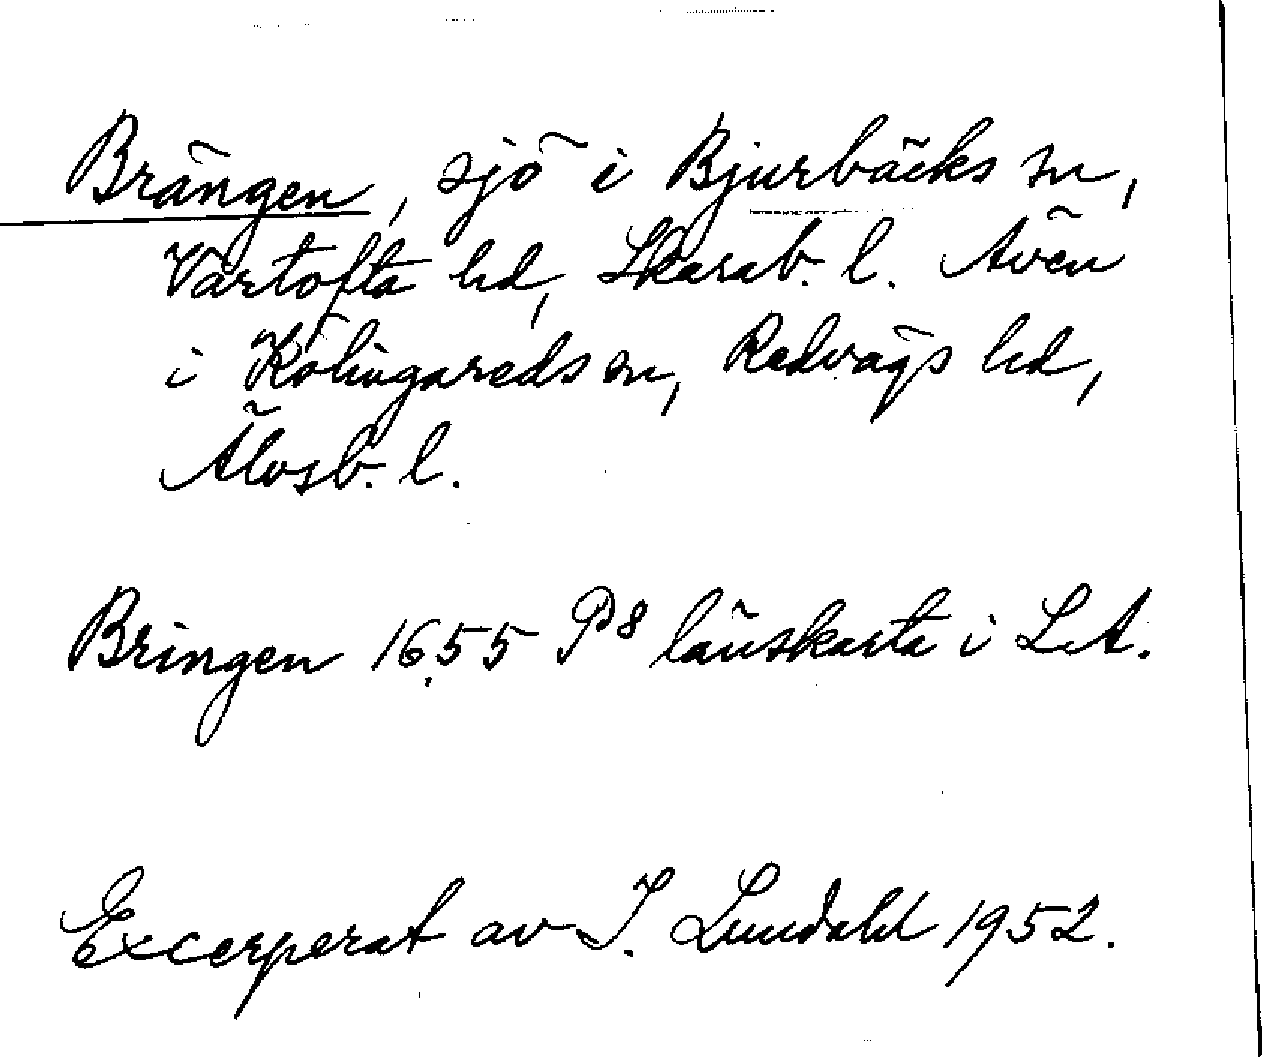 Brängen, sjö i Bjurbäcks sn,
Vartofta hd, Skarab. l. Även
i Kölingareds sn, Redvägs hd,
Älvsb. l.
Bringen 1655 P8 länskarta i LA.
Excerperat av I. Lundahl 1952.